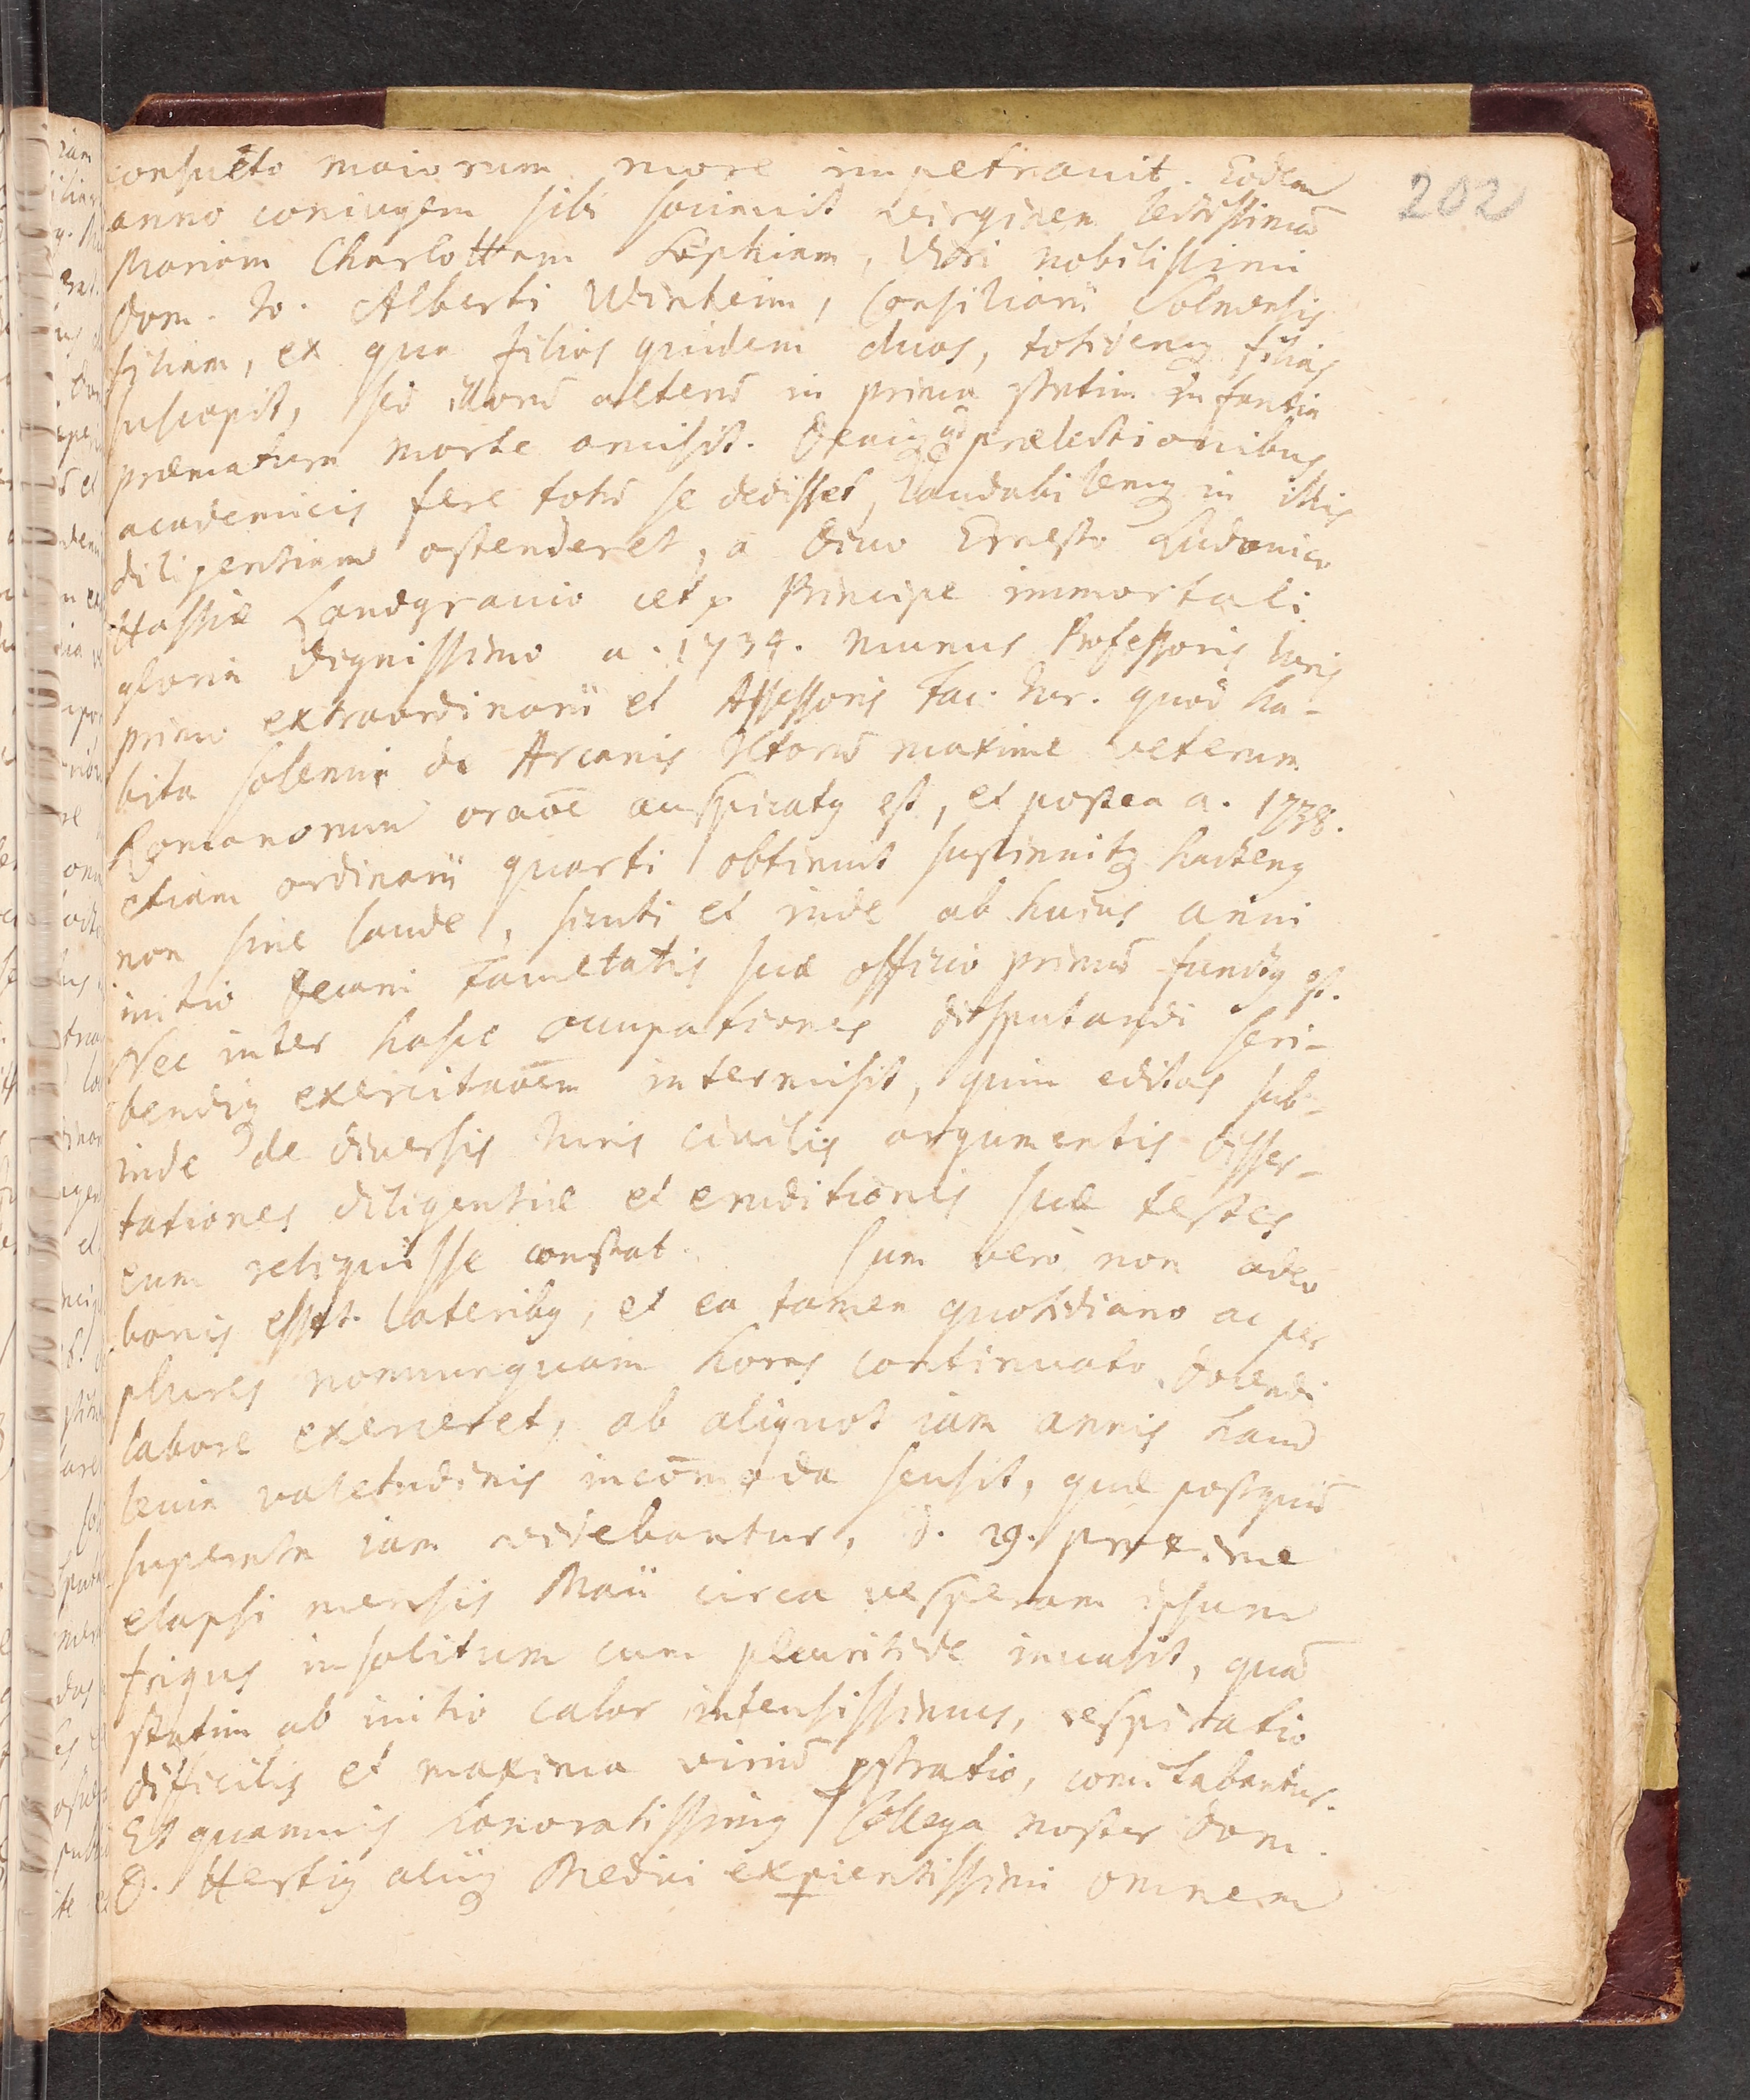 202
consueto maiorum more impetrauit. Eodem
anno coniugem sibi sociauit virginem lectissimā
Mariam Charlottam Sophiam, Viri nobilissimi
Dom. Io. Alberti Winheim, Consiliarii Solmensis
filiam, ex qua filios quidem duos, totidemq filias
suscepit, sed illorū alterū in prima statim infantia
præmatura morte amisit. Deniq cū prælectionibus
academicis fere totū se dedisset, laudabilemq in illis
diligentiam ostenderet, a Diuo Ernesto Ludouico
Hassiæ Landgrauio cet. Principe immortali
gloria dignissimo a. 1734. munus Professoris Iuris
primo extraordinarii et Assessoris Fac. Iur. quod ha-
bita solenni de Arcanis Ictorū maxime veterum
Romanorum oraōe auspicatq est, et postea a. 1738.
etiam ordinarii quarti obtinuit sustinuitq hactenq
non sine laude, sicuti et inde ab huius anni
initio Decani Facultatis suæ officio primū functq est.
Nec inter hasce occupationes disputandi scri-
bendiq exercitaōem intermisit, quin editas sub-
inde de diuersis Iuris ciuilis argumentis disser-
tationes diligentiæ et eruditionis suæ testes
eum reliquisse constat. Cum vero non adeo
bonis esset lateribq, et ea tamen quotidiano ac per
plures nonnunquam horas continuato docendi
labore exerceret, ab aliquot iam annis haud
leuia valetudinis incōmoda sensit, quæ postquā
superata iam videbantur, d. 29. proxime
elapsi mensis Maii circa vesperam ipsum
frigus insolitum cum pleuritide inuasit, quā
statim ab initio calor intensissimus, respiratio
difficilis et maxima viriū pstratio, comitabantur.
Et quamuis honoratissimq Collega noster Dom.
D. Hertiq aliiq Medici expientissimi omnem